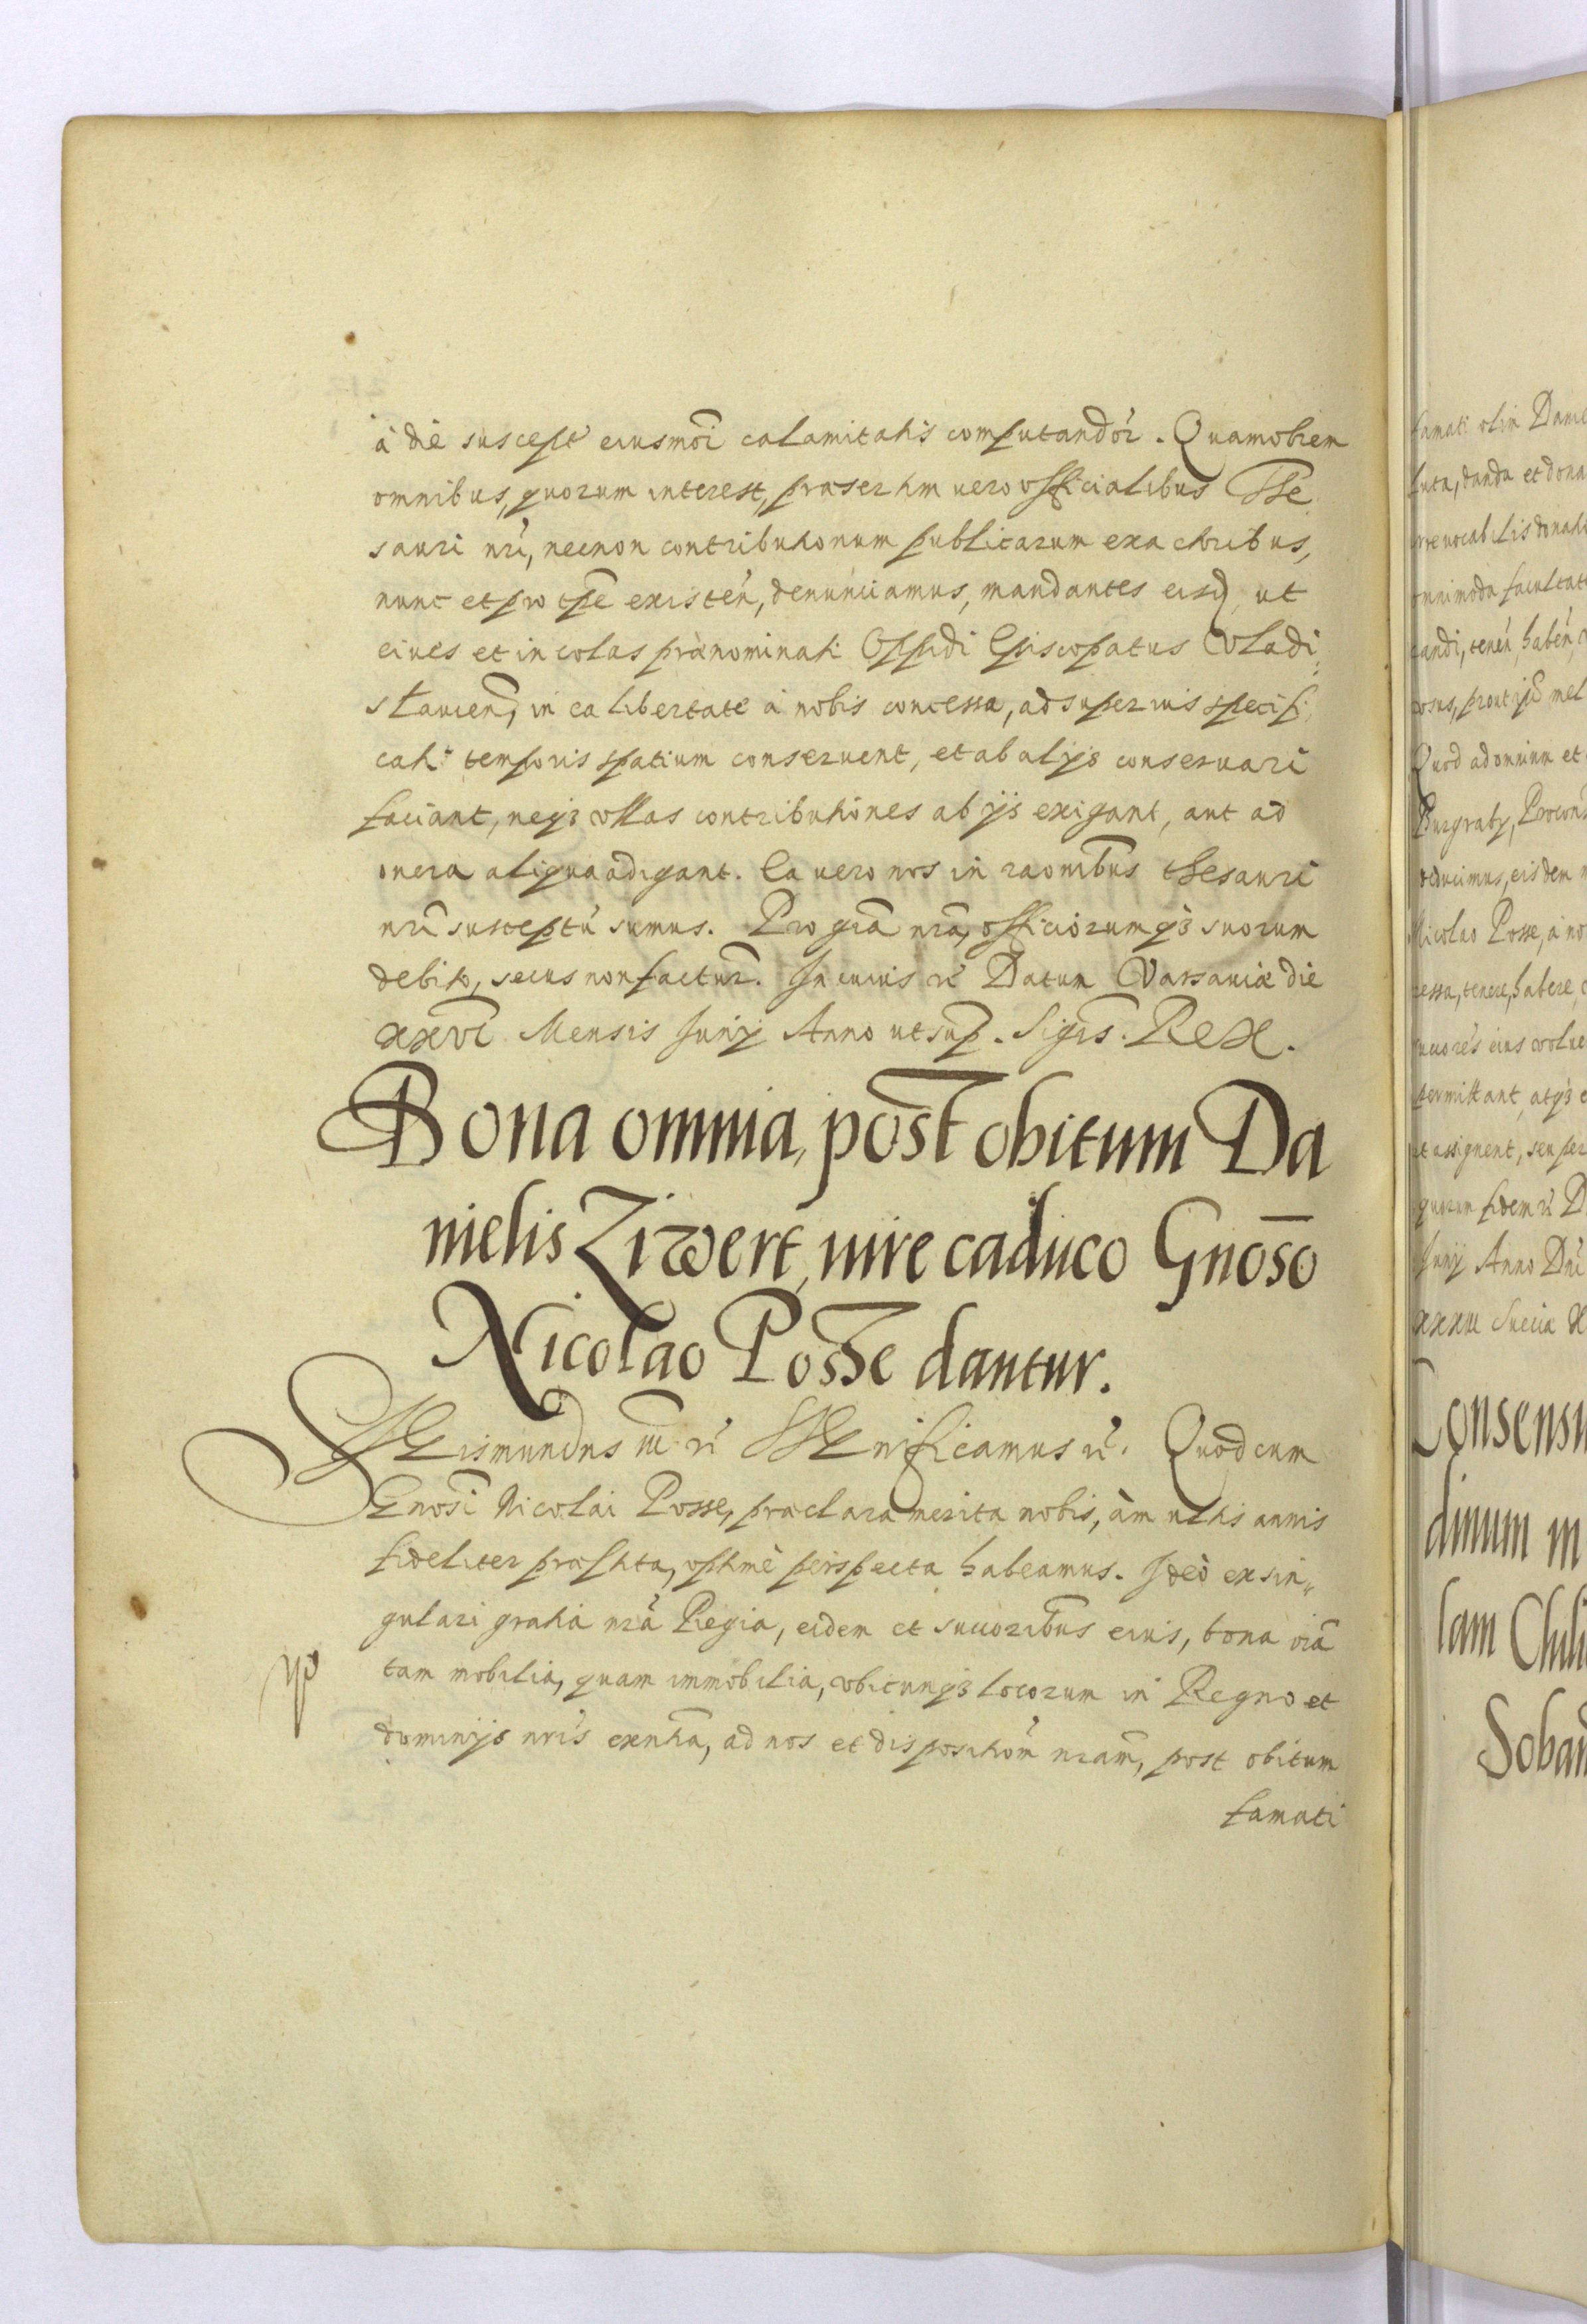 à die suscept eiusmōi calamitatis computandōr. Quamobrem
omnibus, quorum interest, præsertim vero officialibus The
sauri nrī, necnon contributionum publicarum exactoribus,
nunt et pro tpe existeñ, denunciamus, mandantes eisd, ut
ciues et incolas prænominati Oppidi Episcopatus Vladi,,
slauien̄, in ea libertate à nobis concessa, ad superius specifi,,
cati temporis spatium conseruent, et ab alijs conseruari
faciant, neq3 vllas contributiones ab ijs exigant, aut ad
onera aliqua adigant. Ea vero nos in raonibus thesauri
nrī susceptū sumus. Pro grā nrā, officiorumq3 suorum
debito, secus non factur̄. In cuius rī Datum Varsauiæ die
xxvī Mensis Junij Anno ut sup. Sigis. Rex.
Bona omnia, post obitum Da
nielis Ziwert, iure caduco Gnoso
Nicolao Posse dantur.
Sigismundus iii rī Significamus rī. Quod cum
Gnosī Nicolai Posse, præclara merita nobis, à multis annis
fideliter præstita, optimè perspecta habeamus. Ideò ex sin,,
gulari gratia nrā Regia, eidem et succoribus eius, bona oīa
tam mobilia, quam immobilia, vbicunq3 locorum in Regno et
dominijs nrīs exntia, ad nos et dispositiōm nram, post obitum
famati
famati olim Danie
luta, danda et dona
irreuocabilis donati
omnimoda facultate
candi, teneñ, habeñ, v
rosus, prout ipē mel
Quod ad omnium et
Burgrabij, Procons
deducimus, eisdem m
Nicolao Posse, à no
cessa, tenere, habere, v
succores eius volue
permittant, atq3 e
et assignent, seu per
quorum fidem rī D
Junij Anno Dnī
xxxiii Sueciæ x
Consensu
dinum in
lam Chili
Soban